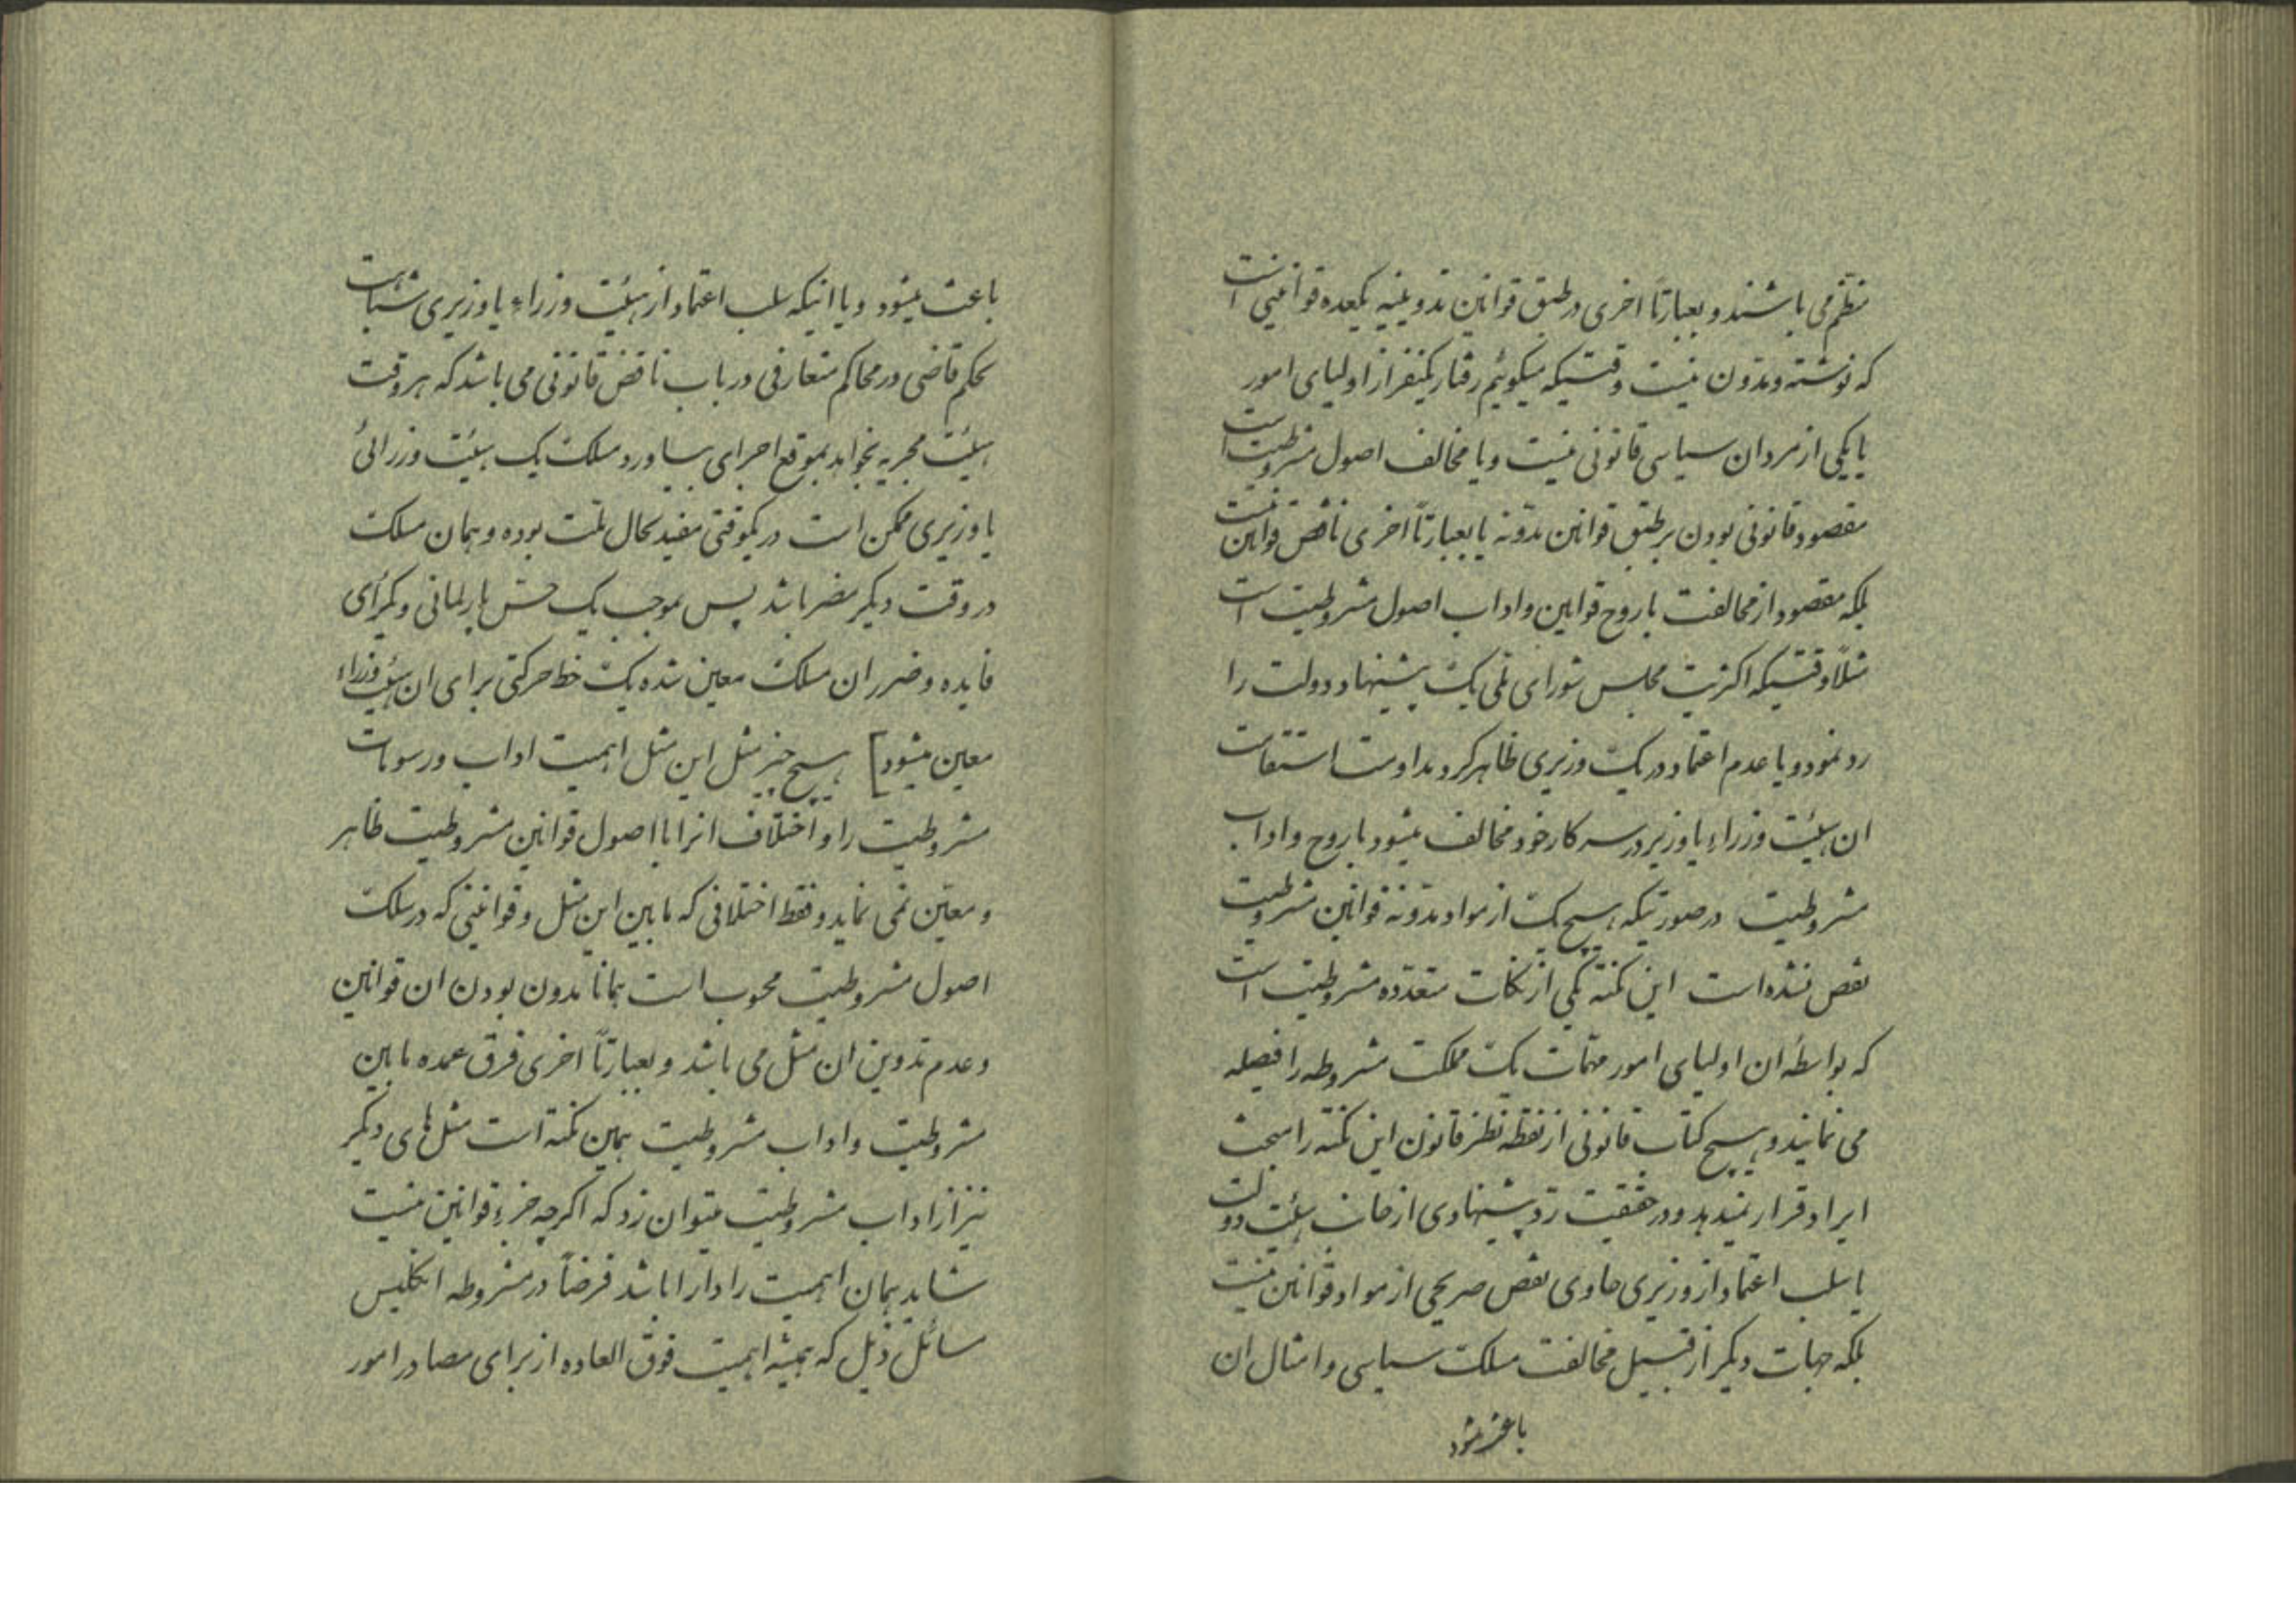 منظم می باشند و بعبارتاً اخری در طبق قوانین تدوینیه یکعده قوانینی است
که نوشته و مدون نیست وقتیکه میگوئیم رفتار یکنفر از اولیای امور
یا یکی از مردان سیاسی قانونی نیست و یا مخالف اصول مشروطیت است
مقصود قانونی بودن بر طبق قوانین مدونه یا بعبارتاً اخری ناقض قوانین نیست
بلکه مقصود از مخالفت با روح قوانین و اداب اصول مشروطیت است
مثلاً وقتیکه اکثریت مجلس شورای ملی یک پیشنهاد دولت را
رد نمود و یا عدم اعتماد در یک وزیری ظاهر کرد مداومت استقامت
ان هیئت وزراء یا وزیر در سر کار خود مخالف میشود با روح و اداب
مشروطیت در صورتیکه هیچ یک از مواد مدونه قوانین مشروطیت
نقض نشده است این نکته یکی از نکات متعدده مشروطیت است
که بواسطهٔ ان اولیای امور مهمات یک مملکت مشروطه را فیصله
می نمایند و هیچ کتاب قانونی از نقطه نظر قانون این نکته را مبحث
ایراد قرار نمیدهد و در حقیقت رد پیشنهادی از جانب هیئت دولت
یا سلب اعتماد از وزیری حاوی نقض صریحی از مواد قوانین نیست
بلکه جهات دیگر از قبیل مخالفت مسلک سیاسی و امثال ان
باعث میشود
باعث میشود و یا اینکه سلب اعتماد از هیئت وزراء یا وزیری شباهت
بحکم قاضی در محاکم متعارفی در باب ناقض قانونی می باشد که هر وقت
هیئت مجریه بخواهد بموقع اجرای بیاورد مسلک یک هیئت وزرائی
یا وزیری ممکن است در یکوقتی مفید بحال ملت بوده و همان مسلک
در وقت دیگر مضر باشد پس بموجب یک حس پارلمانی و یکرأی
فایده و ضرر ان مسلک معین شده یک خط حرکتی برای ان هیئت وزراء
معین میشود] هیچ چیز مثل این مثل اهمیت اداب و رسومات
مشروطیت را و اختلاف انرا با اصول قوانین مشروطیت ظاهر
و معین نمی نماید و فقط اختلافی که مابین این مثل و قوانینی که در سلک
اصول مشروطیت محسوب است همانا مدون بودن ان قوانین
و عدم تدوین ان مثل می باشد و بعبارتاً اخری فرق عمده مابین
مشروطیت و اداب مشروطیت همین نکته است مثل های دیگر
نیز از اداب مشروطیت میتوان زد که اگرچه جزء قوانین نیست
شاید همان اهمیت را دارا باشد فرضاً در مشروطه انگلیس
مسائل ذیل که همیشه اهمیت فوق العاده از برای مصادر امور